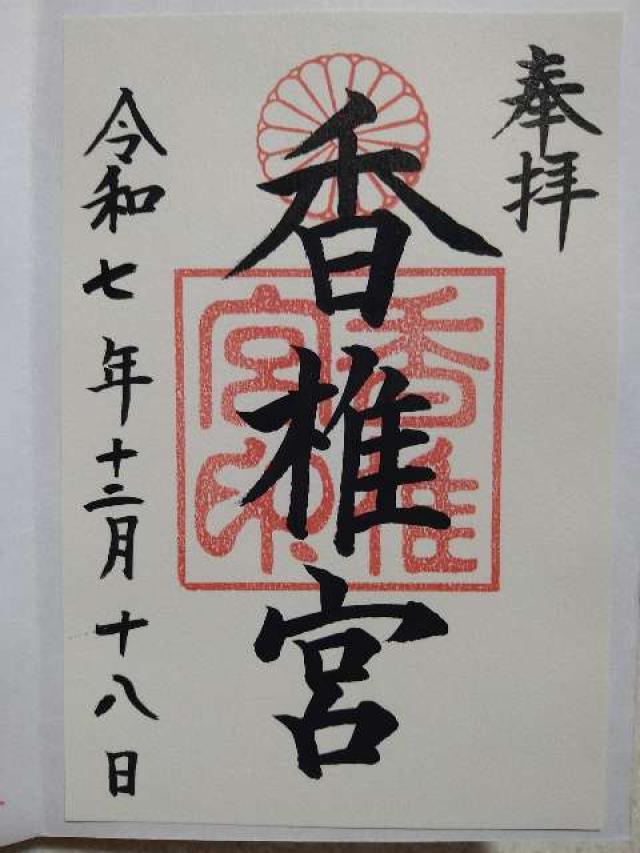 奉拝
香椎宮
香椎宮印
令和七年十二月十八日